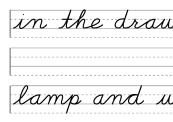 in the draw
lamp and w